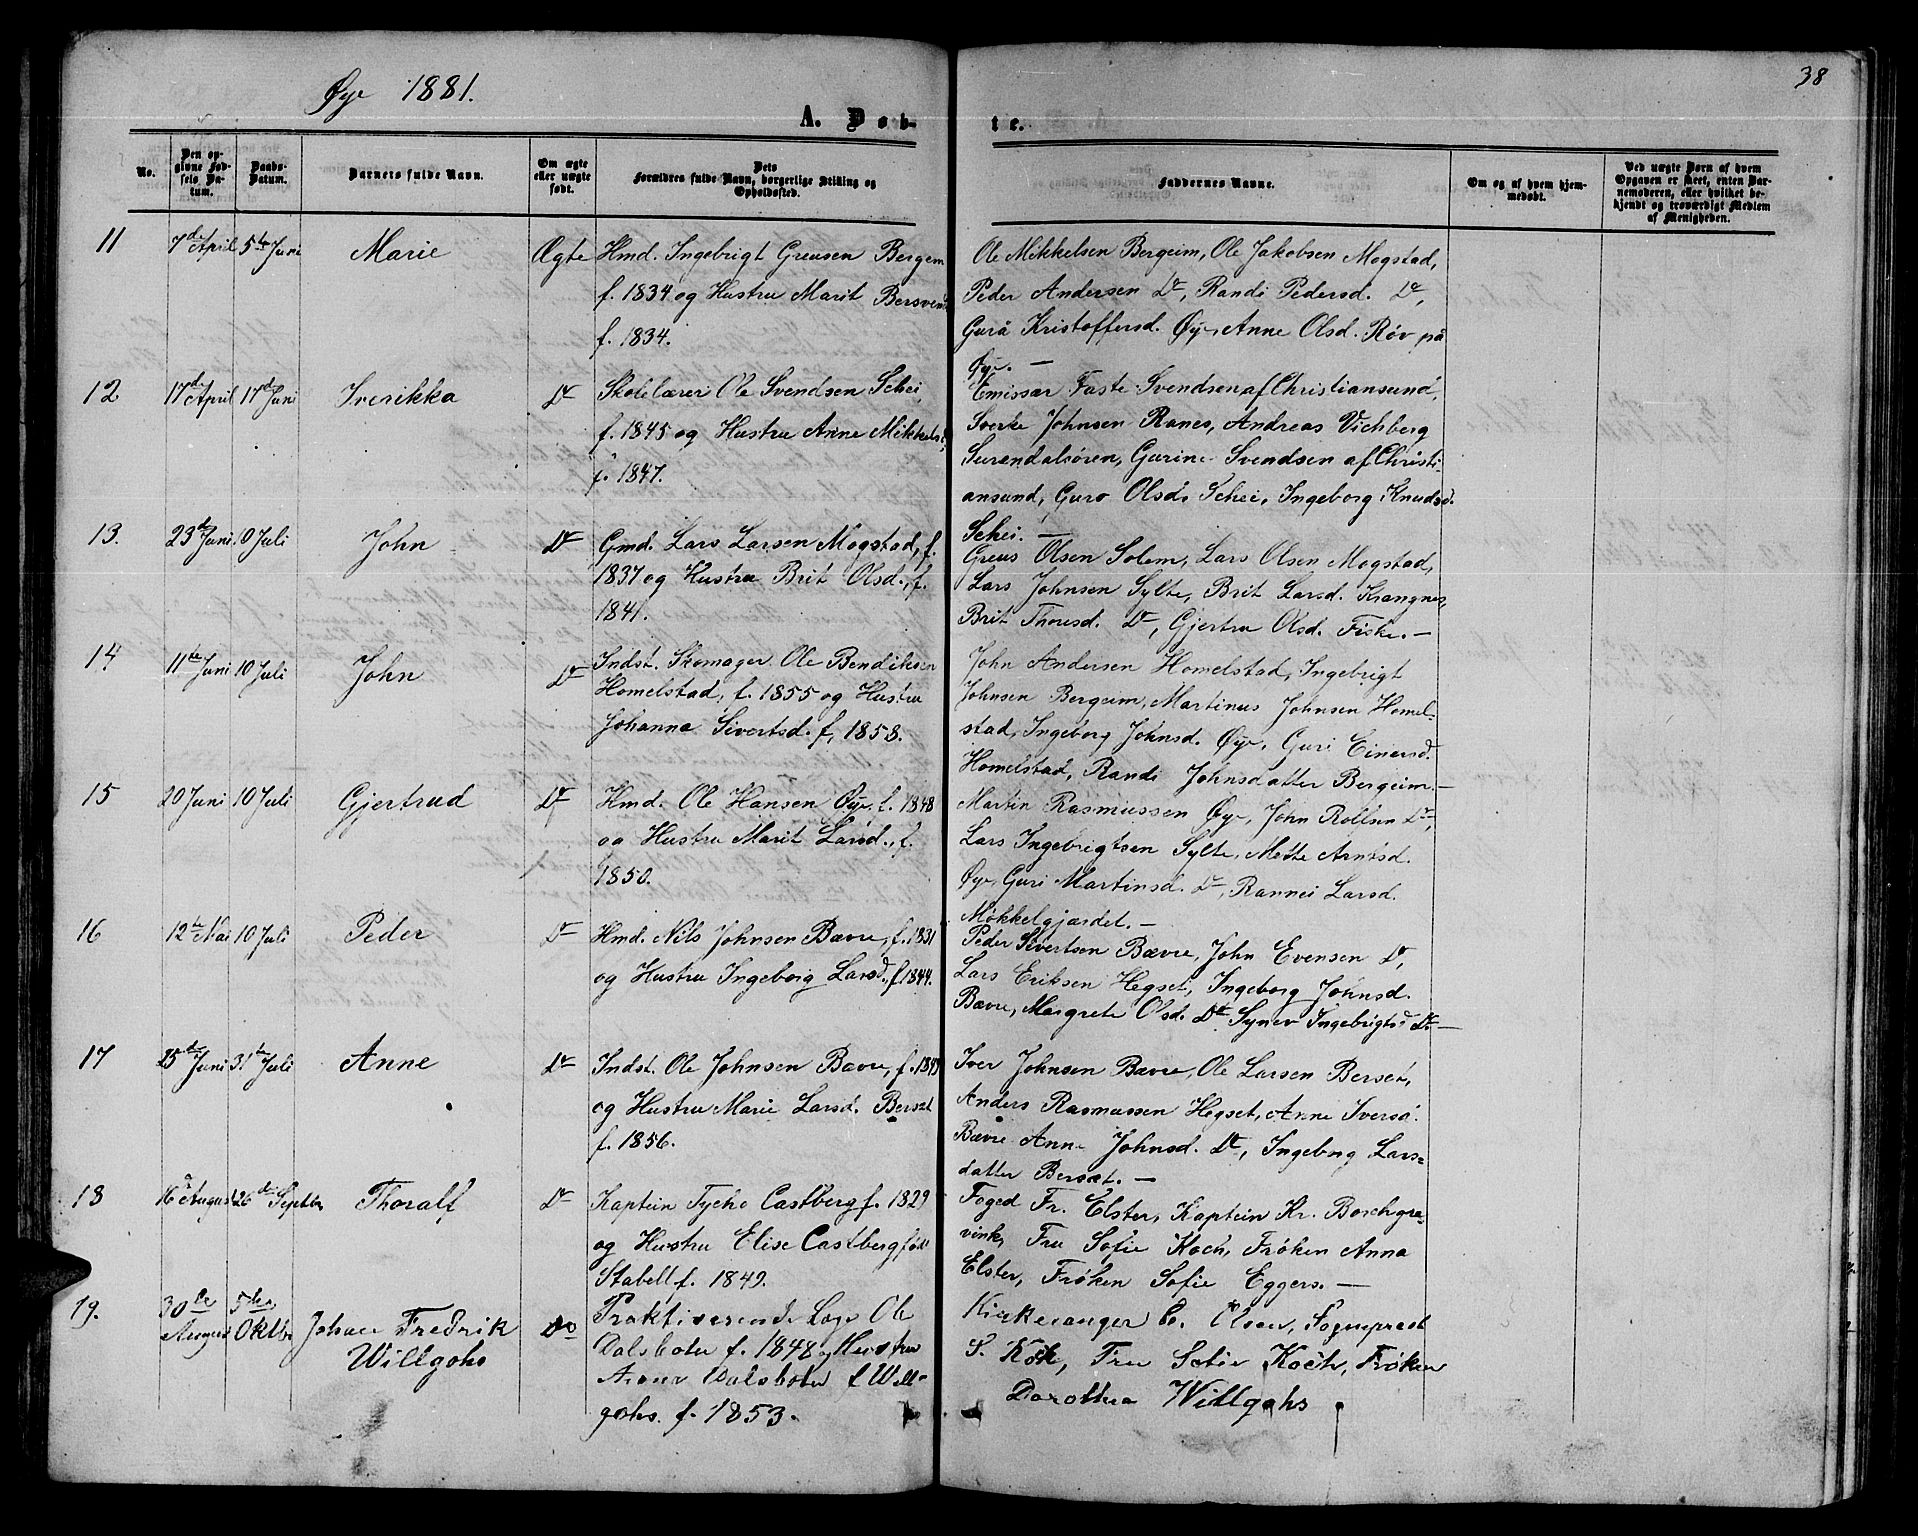 Øye 1881.
38
A. Døb-
te.
No.
Den op-
givne Fød-
sels Da-
tum.
Daabs-
Datum.
Barnets fulde Navn.
Om ægte
eller uægte
født.
Dets
Forældres fulde Navn, borgerlige Stilling og
Opholdssted.
Faddernes Navne.
Om og af hvem hjem-
medøbt.
Ved uægte Børn af hvem
Opgaven er skeet, enten Bar-
nemoderen, eller hvilket be-
kjendt og troværdigt Medlem
af Menigheden.
11
7d April
5te Juni
Marie
Ægte
Hmd. Ingebrigt Greusen Bergem
f. 1834 og Hustru Marit Bersvend
f. 1834.
Ole Mikkelsen Bergeim, Ole Jakobsen Mogstad,
Peder Andersen Do, Randi Pedersd. Do,
Gurå Kristoffersd. Øye, Anne Olsd. Røv på
Øye. —
12
17d April
17d Juni
Sverikka
Do
Skolelærer Ole Svendsen Schei,
f. 1845 og Hustru Anne Mikkelsd.
f. 1847.
Emissær Faste Svendsen af Christiansund,
Sverke Johnsen Ranes, Andreas Vichberg
Surendalsøren, Gurine Svendsen af Christi-
ansund, Guro Olsd. Schei, Ingeborg Knudsd.
Schei. —
13.
23d Juni
10 Juli
John
Do
Gmd. Lars Larsen Mogstad, f.
1837 og Hustru Brit Olsd., f.
1841.
Greus Olsen Solem, Lars Olsen Mogstad,
Lars Johnsen Sylte, Brit Larsd. Krangnes,
Brit Thoresd. Do, Gjertru Olsd. Fiske. —
14
11te Juni
10 Juli
John
Do
Indst. Skomager Ole Bendiksen
Homelstad, f. 1855 og Hustru
Johanna Sivertsd. f. 1858.
John Andersen Homelstad, Ingebrigt
Johnsen Bergeim, Martinus Johnsen Homel-
stad, Ingeborg Johnsd. Øye, Guri Einersd.
Homelstad, Randi Johnsdatter Bergeim. —
15
20 Juni
10 Juli
Gjertrud
Do
Hmd. Ole Hansen Øye, f. 1848
og Hustru Marit Larsd., f.
1850.
Martin Rasmussen Øye, John Rolfsen Do,
Lars Ingebrigtsen Sylte, Mette Arntsd.
Øye, Guri Martinsd. Do, Rannei Larsd.
Møkkelgjærdet. —
16
12te Mai
10 Juli
Peder
Do
Hmd. Nils Johnsen Bævre, f. 1831
og Hustru Ingeborg Larsd., f. 1844.
Peder Sivertsen Bævre, John Evensen Do,
Lars Eriksen Hegset, Ingeborg Johnsd.
Bævre, Margrete Olsd. Do, Synev Ingebrigtsd. Do —
17
25de Juni
31te Juli
Anne
Do
Indst. Ole Johnsen Bævre, f. 1849
og Hustru Marie Larsd. Bersæt
f. 1856.
Iver Johnsen Bævre, Ole Larsen Berset,
Anders Rasmussen Hegset, Anne Iversd.
Bævre Anne Johnsd. Do, Ingeborg Lars-
datter Bersæt. —
18
16 August
26de Septbr
Thoralf
Do
Kaptein Tycho Castberg f. 1829
og Hustru Elise Castberg, født
Stabell f. 1849.
Foged Fr. Elster, Kaptein Kr. Borchgre-
vink, Fru Sofie Koch, Frøken Anna
Elster, Frøken Sofie Eggers. —
19.
30de
August
5te
Oktbr
Johan Fredrik
Willgohs
Do
Praktiserende Læge Ole
Dalsboter f. 1848 og Hustru
Dalsboter f. Will-
gohs. f. 1853.
Kirkesanger E. Olsen, Sogneprest
S. Koch, Fru Sofie Koch, Frøken
Dorothea Willgohs.